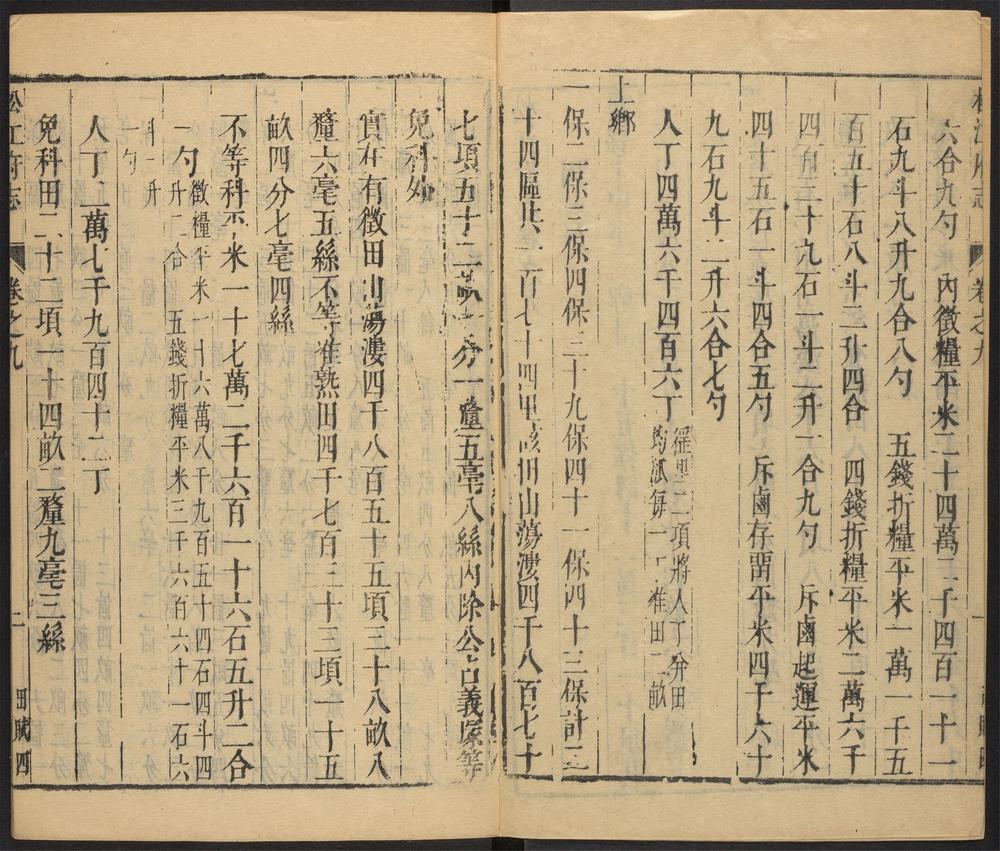 六合九勺　內徵糧平米二十四萬三千四百一十一
石九斗八升九合八勺　五錢折糧平米一萬一千五
百五十石八斗二升四合　四錢折糧平米二萬六千
四百三十九石二斗二升一合九勺　斥鹵起運平米
四十五石一斗四合五勺　斥鹵存留平米四千六十
九石九斗二升六合七勺
人丁四萬六千四百六丁
徭里二項將人丁分田
均派每一丁准田二畝
上鄉
一保二保三保四保三十九保四十一保四十三保計三
十四區共一百七十四里該田山蕩漊四千八百七十
七項五十二畝分一釐五毫八絲內除公占義塚等
免科外
實在有徵田山蕩漊四千八百五十五項三十八畝八
釐六毫五絲不等准熟田四千七百三十三項一十五
畝四分七毫四絲
不等科平米一十七萬二千六百一十六石五升二合
一勺
徵糧平米一十六萬八千九百五十四石四斗四
升一合　五錢折糧平米三千六百六十一石六
斗一升
一勺
人丁二萬七千九百四十二丁
免科田二十二項一十四畝二釐九毫三絲
松江府志
卷之九
二
田賦四